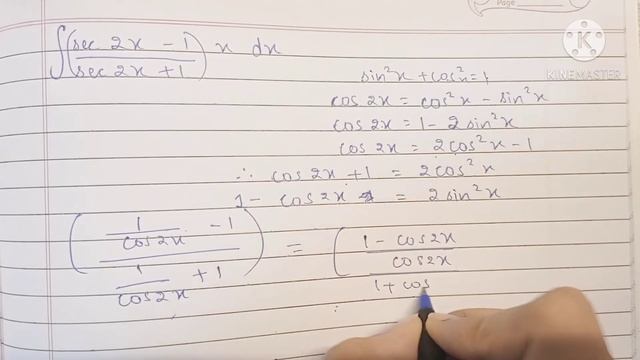 Page
∫(sec 2x - 1 / sec 2x + 1) x dx
KINEMASTER
sin²x + cos²x = 1
cos 2x = cos²x - sin²x
cos 2x = 1 - 2 sin²x
cos 2x = 2cos²x - 1
∴ cos 2x + 1 = 2cos²x
1 - cos 2x = 2 sin²x
(1/cos2x - 1 / 1/cos2x + 1) = (1 - cos2x / cos2x / 1 + cos